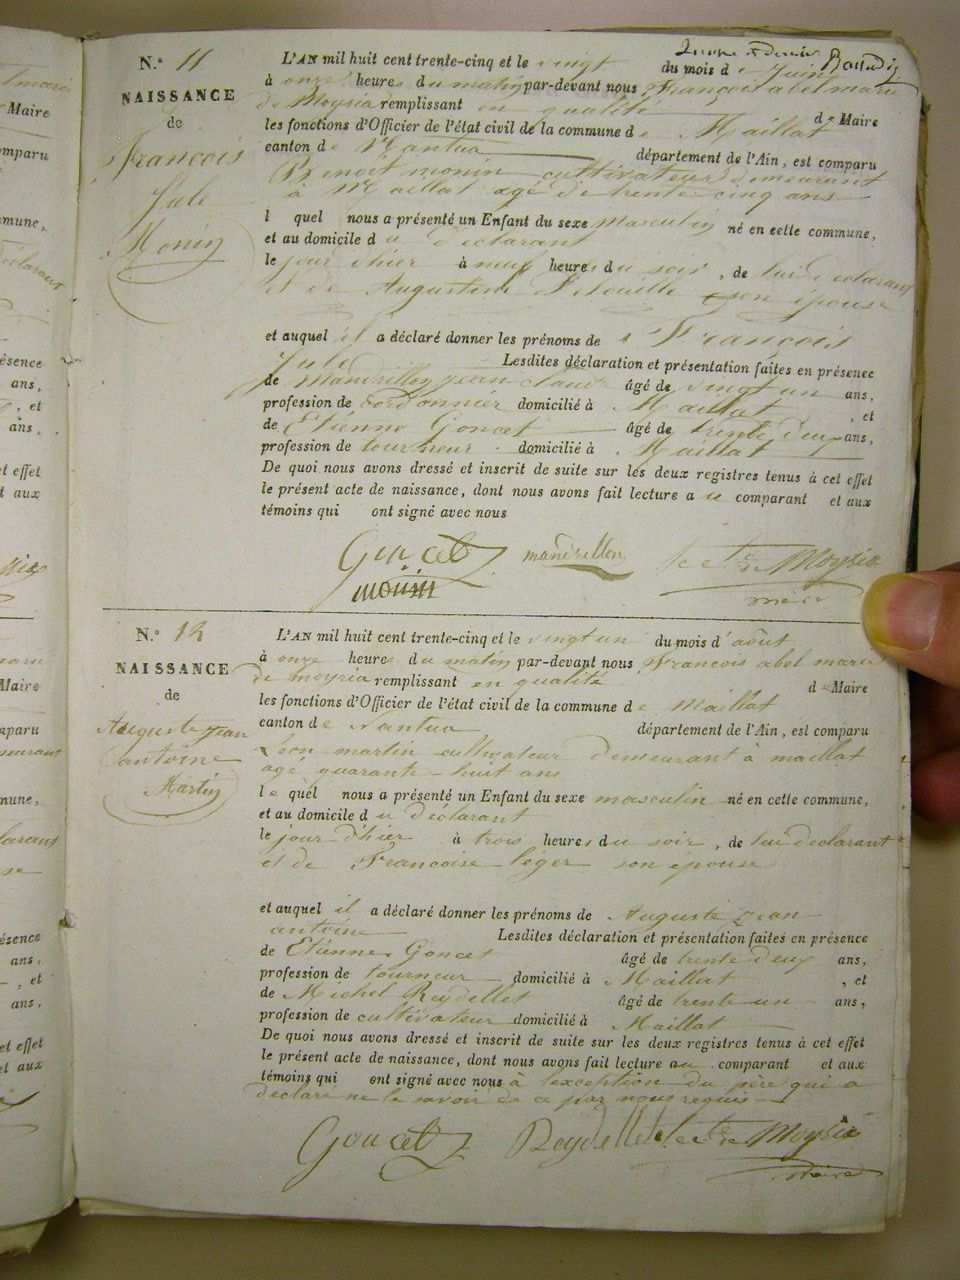 N.° 11
NAISSANCE
de
François
Jule
Monin
L'AN mil huit cent trente-cinq et le vingt du mois de juin
à onze heures du matin par-devant nous François abel marie
de Moysia remplissant en qualité de Maire
les fonctions d'Officier de l'état civil de la commune de Maillat
canton de Nantua département de l'Ain, est comparu
Benoit monin cultivateur demeurant
à Maillat agé de trente cinq ans
lequel nous a présenté un Enfant du sexe masculin né en cette commune,
et au domicile du déclarant
le jour d'hier à neuf heures du soir, de lui déclarant
et de Augustine son épouse
et auquel il a déclaré donner les prénoms de François
Jule Lesdites déclaration et présentation faites en présence
de Mandrillon jean claude âgé de vingt un ans,
profession de cordonnier domicilié à Maillat, et
de Etienne Goncet âgé de trente deux ans,
profession de tourneur domicilié à Maillat
De quoi nous avons dressé et inscrit de suite sur les deux registres tenus à cet effet
le présent acte de naissance, dont nous avons fait lecture au comparant et aux
témoins qui ont signé avec nous
Goncet mandrillon de Moysia
monin maire
N.° 12
NAISSANCE
de
Auguste jean
antoine
Martin
L'AN mil huit cent trente-cinq et le vingt un du mois d'août
à onze heures du matin par-devant nous François abel marie
de moysia remplissant en qualité de Maire
les fonctions d'Officier de l'état civil de la commune de Maillat
canton de Nantua département de l'Ain, est comparu
Léon martin cultivateur demeurant à maillat
agé quarante huit ans
lequel nous a présenté un Enfant du sexe masculin né en cette commune,
et au domicile du déclarant
le jour d'hier à trois heures du soir, de lui déclarant
et de Françoise léger son épouse
et auquel il a déclaré donner les prénoms de Auguste jean
antoine Lesdites déclaration et présentation faites en présence
de Etienne Goncet âgé de trente deux ans,
profession de tourneur domicilié à Maillat, et
de Michel Reydellet âgé de trente un ans,
profession de cultivateur domicilié à Maillat
De quoi nous avons dressé et inscrit de suite sur les deux registres tenus à cet effet
le présent acte de naissance, dont nous avons fait lecture au comparant et aux
témoins qui ont signé avec nous à l'exception du père qui a
déclaré ne le savoir de ce par nous requis
Goncet Reydellet de Moysia
maire